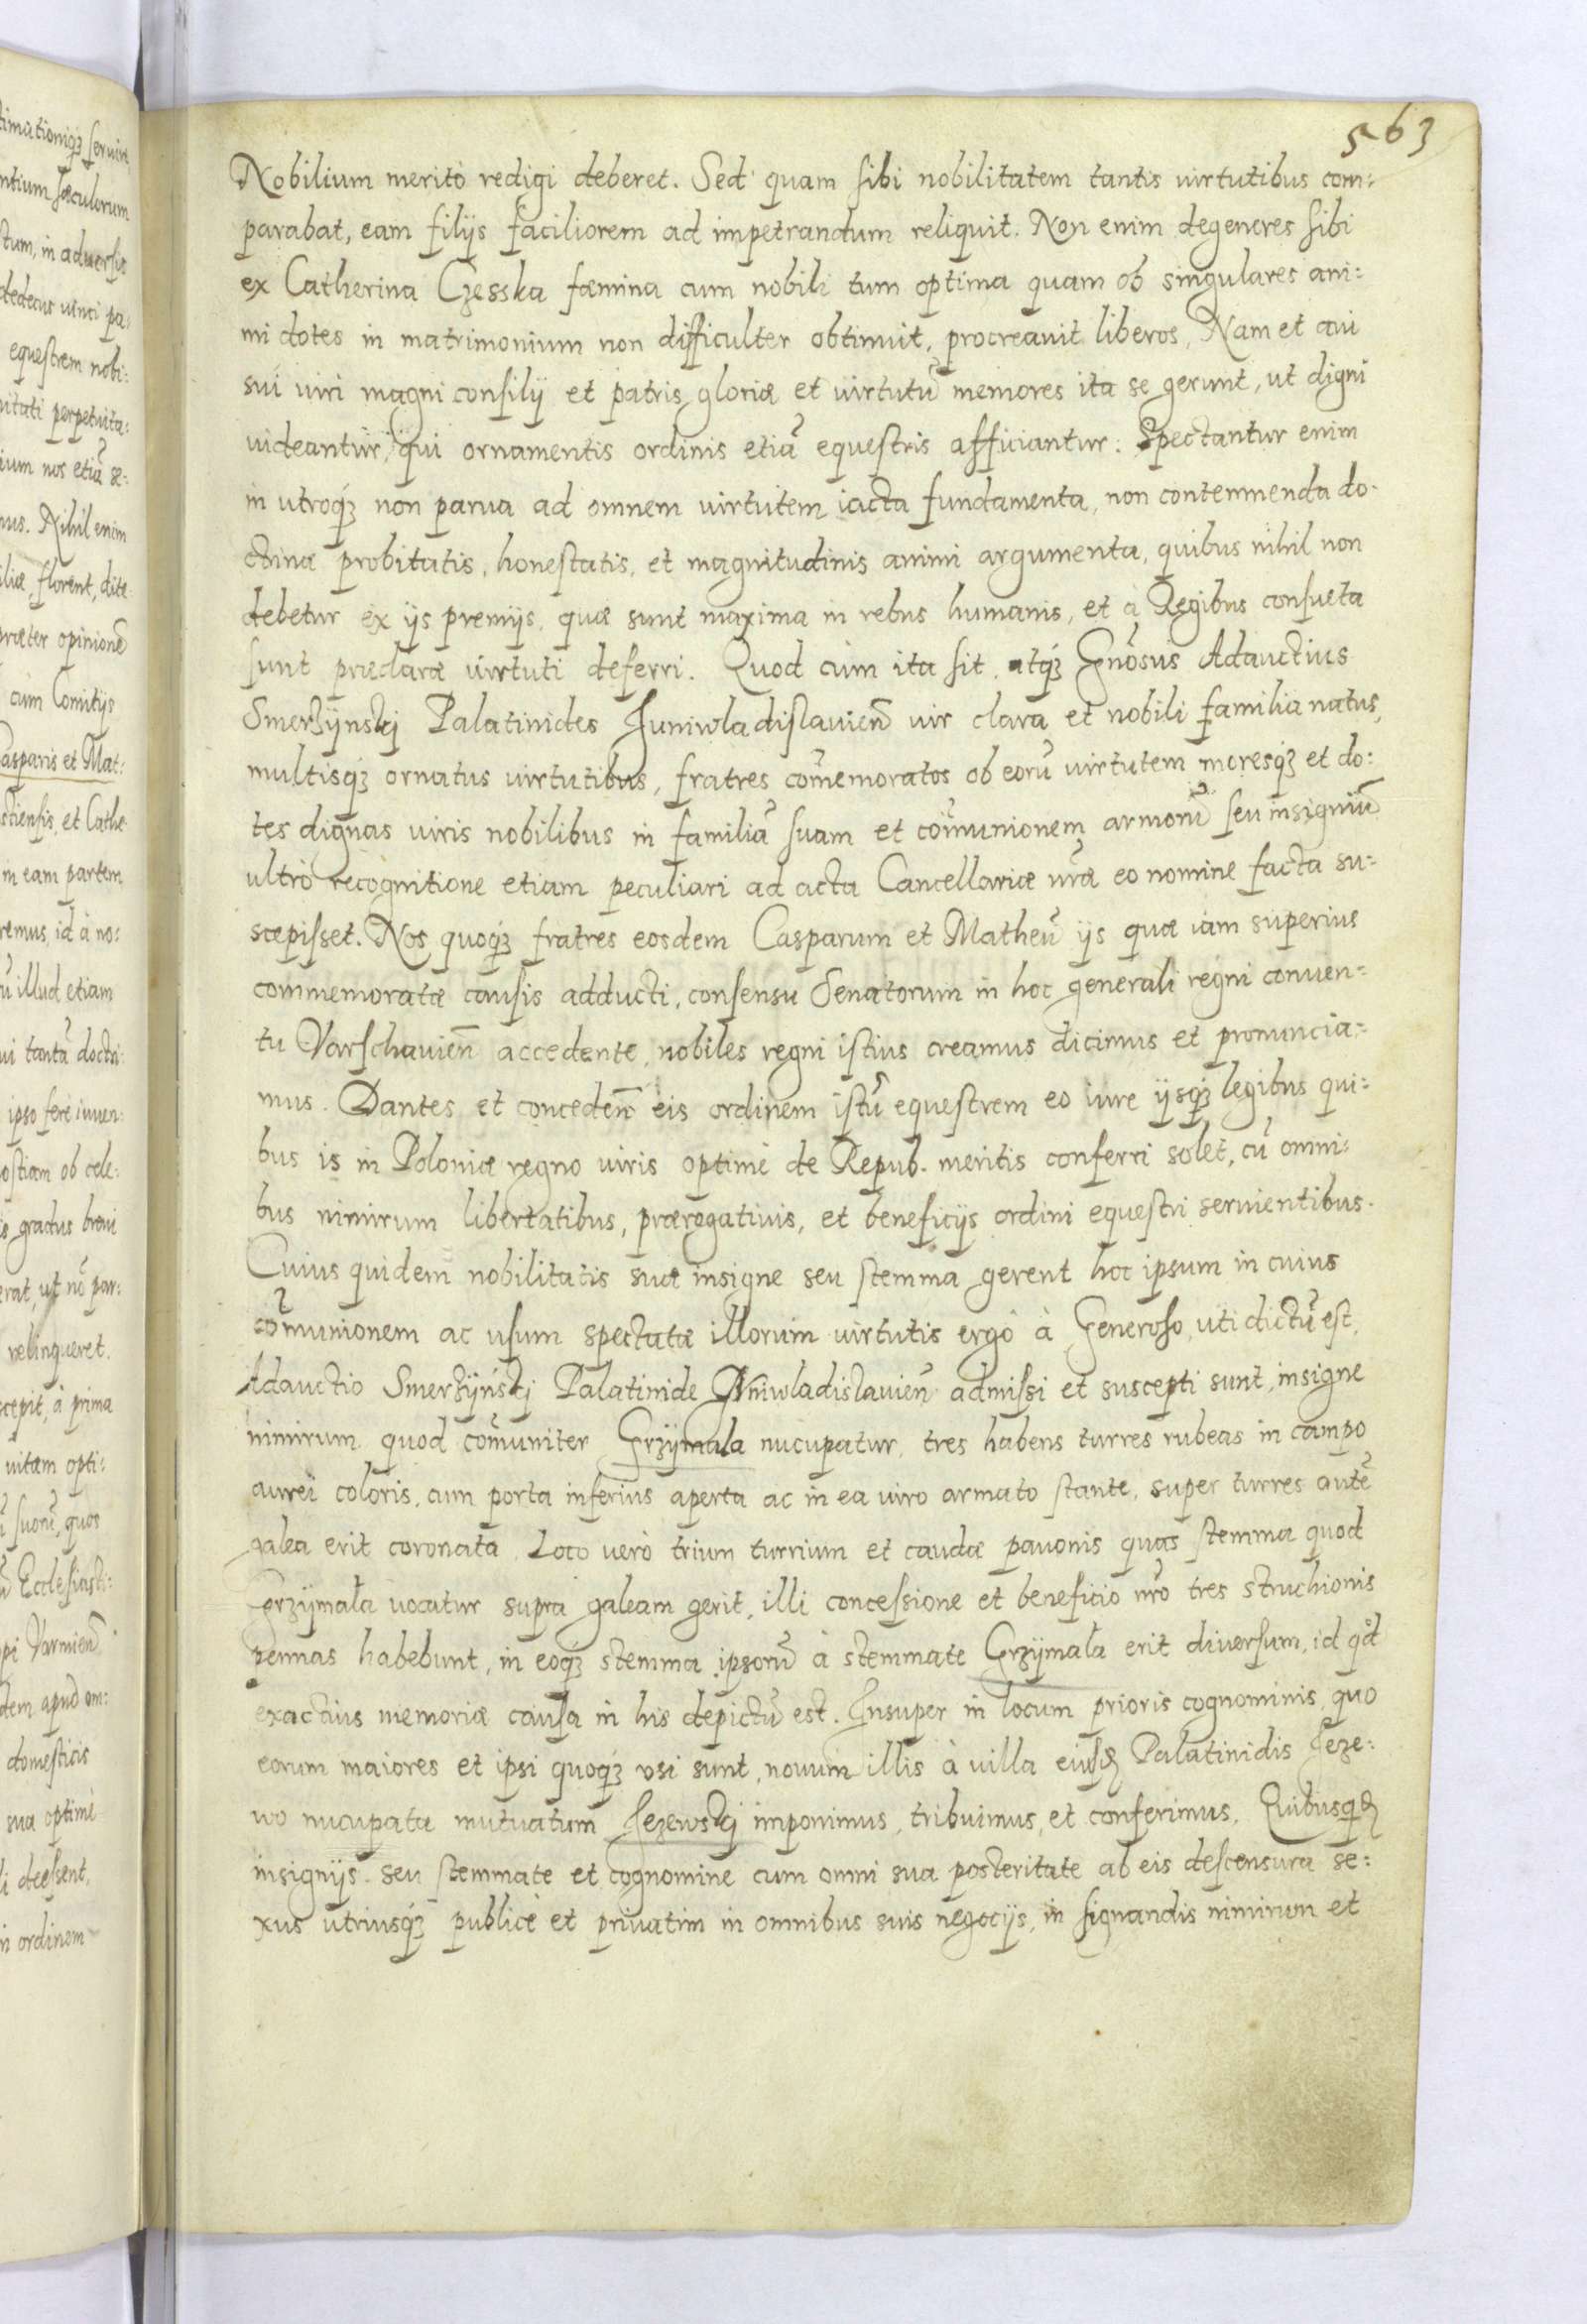 563
Nobilium meritò redigi deberet. Sed quam sibi nobilitatem tantis virtutibus com:
parabat, eam filijs faciliorem ad impetrandum reliquit. Non enim degeneres sibi
ex Catherina Czesska fœmina cum nobili tum optima quam ob singulares ani:
mi dotes in matrimonium non difficulter obtinuit, procreauit liberos, Nam et aui
sui viri magni consilij et patris gloriæ et virtutũ memores ita se gerunt, ut digni
uideantur, qui ornamentis ordinis etiã equestris afficiantur: Spectantur enim
in utroq́ꝫ non parua ad omnem virtutem iacta fundamenta, non contemnenda do:
ctrinæ probitatis, honestatis, et magnitudinis animi argumenta, quibus nihil non
debetur ex ijs premijs, quæ sunt maxima in rebus humanis, et à Regibus consueta
sunt præclaræ virtuti deferri. Quod cùm ita sit, atq́ꝫ Gnõsus Adauctius
Smerzÿnskj Palatinides Juniwladislauieñ vir clara et nobili familia natus,
multisq́ꝫ ornatus virtutibus, fratres com̃emoratos ob eorũ virtutem moresq́ꝫ et do:
tes dignas viris nobilibus in familiã suam et com̃unionem armorũ seu insigniũ
ultrò recognitione etiam peculiari ad acta Cancellariæ nr̃æ eo nomine facta su:
scepisset. Nos quoq́ꝫ fratres eosdem Casparum et Matheũ ijs quæ iam superius
commemoratæ causis adducti, consensu Senatorum in hoc generali regni conuen:
tu Varschauieñ accedente, nobiles regni istius creamus dicimus et pronuncia:
mus. Dantes et concedeñ eis ordinem istũ equestrem eo iure ijsq́ꝫ legibus qui:
bus is in Poloniæ regno viris optimè de Repub. meritis conferri solet, cũ omni:
bus nimirum libertatibus, prærogatiuis, et beneficijs ordini equestri seruientibus.
Cuius quidem nobilitatis suæ insigne seu stemma gerent hoc ipsum in cuius
com̃unionem ac usum spectatæ illorum virtutis ergò à Generoso, uti dictũ est,
Adauctio Smerzÿńskj Palatinide Juniwladislauieñ admissi et suscepti sunt, insigne
nimirum quod com̃uniter Grzÿmala nucupatur, tres habens turres rubeas in campo
aurei coloris, cum porta inferius aperta ac in ea viro armato stante, super turres autẽ
galea erit coronata. Loco verò trium turrium et caudæ pauonis quas stemma quod
Grzÿmała uocatur supra galeam gerit, illi concessione et beneficio nr̃o tres struchionis
pennas habebunt, in eoq́ꝫ stemma ipsorũ à stemmate Grzÿmała erit diuersum, id qd̃
exactius memoriæ causa in his depictũ est. Insuper in locum prioris cognominis, quo
eorum maiores et ipsi quoq́ꝫ vsi sunt, nouum illis à villa eiusd Palatinidis Jeze:
wo nucupata mutuatum Jezewskj imponimus, tribuimus, et conferimus. Quibusqd
insignijs seu stemmate et cognomine cum omni sua posteritate ab eis descensura se:
xus utriusq́ꝫ publicè et priuatim in omnibus suis negocijs, in signandis nimirum et